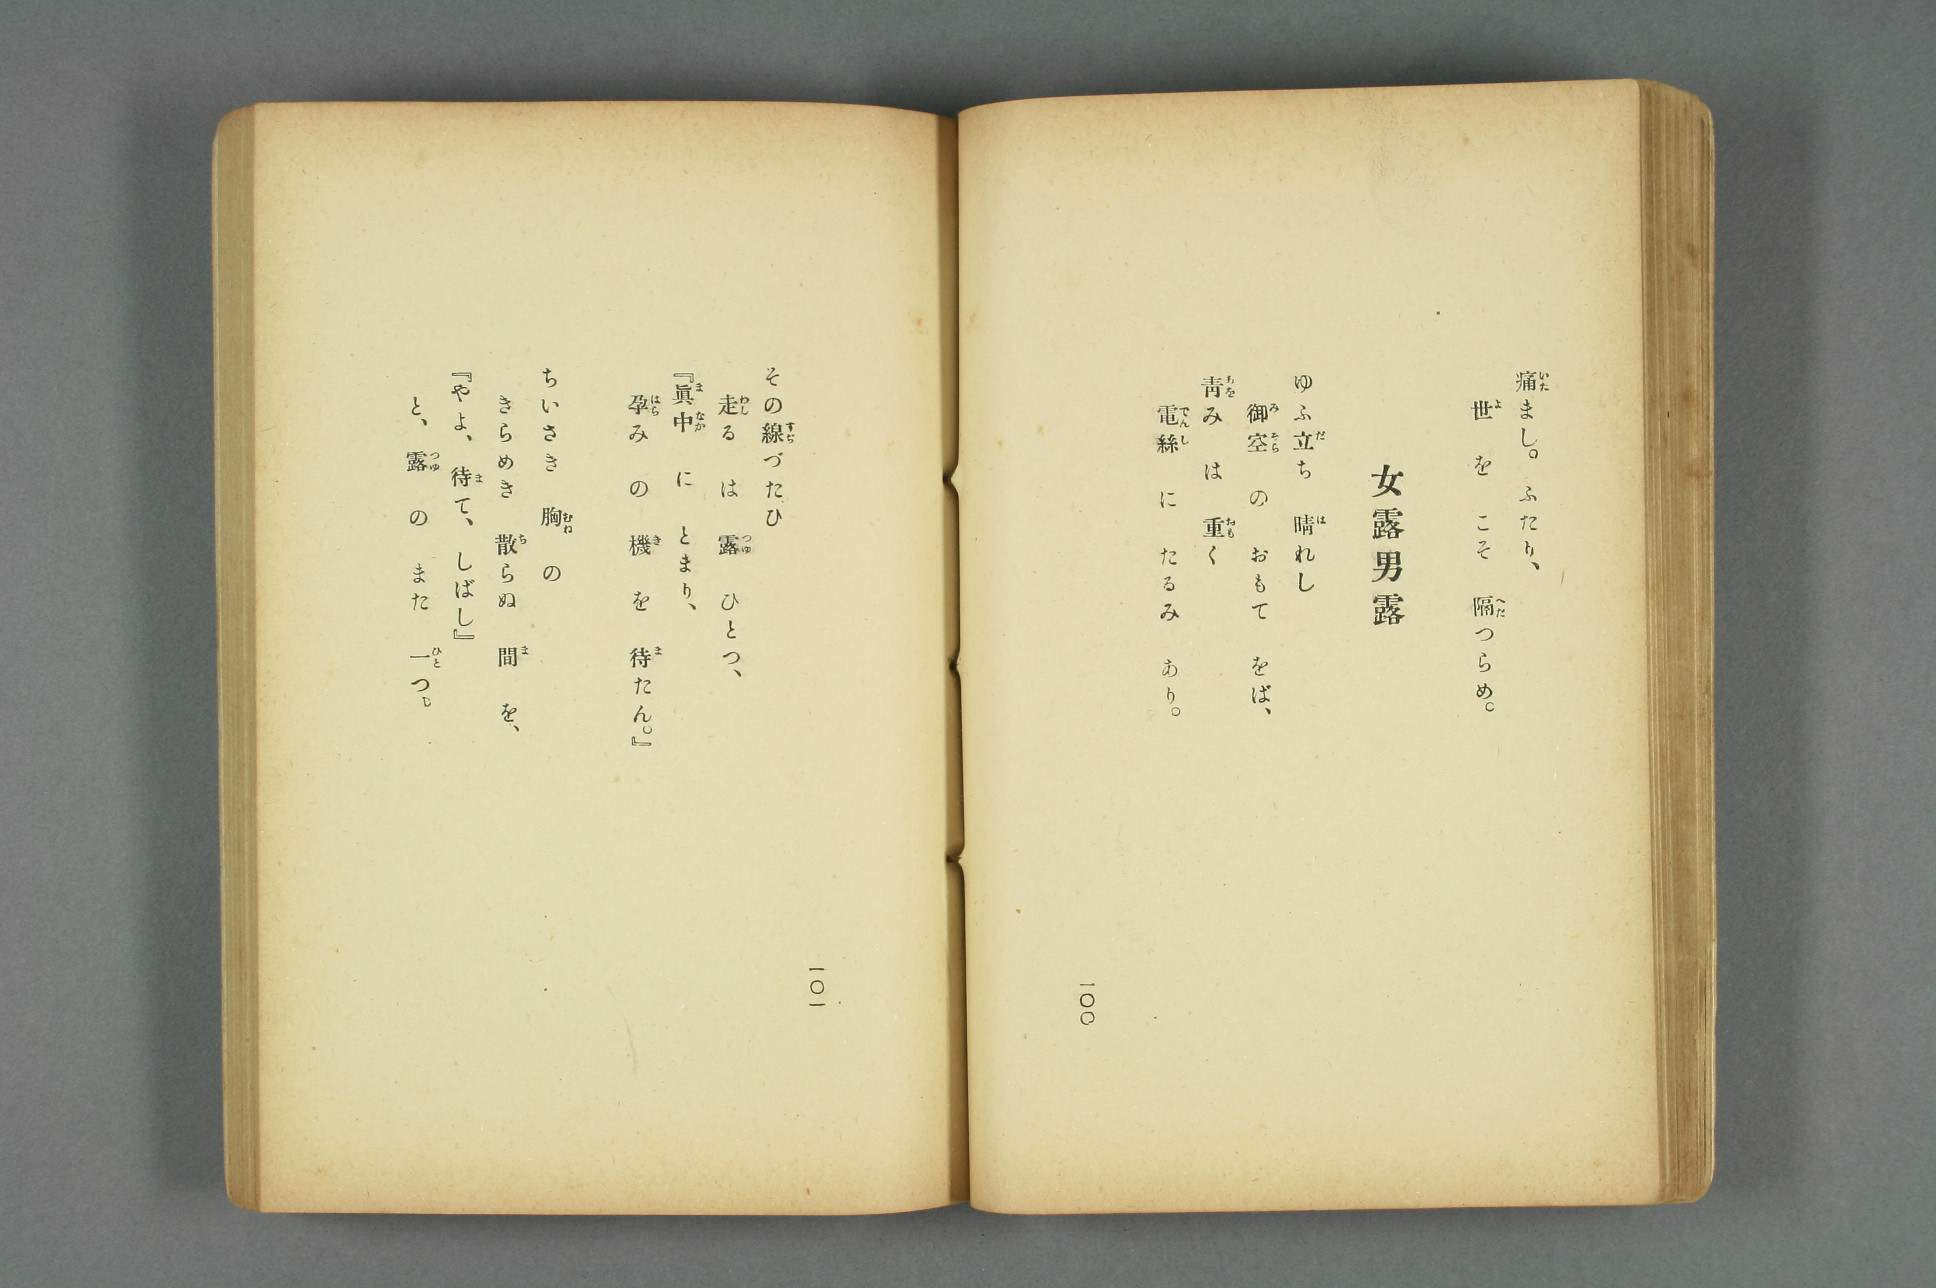 痛まし。ふたり、
世を こそ 隔つらめ。
女露男露
ゆふ立ち 晴れし
御空 の おもて をば、
靑み は 重く
電絲 に たるみ あり。
一〇〇
その線づたひ
走る は 露 ひとつ、
『眞中 に とまり、
孕み の 機 を 待たん。』
ちいさき 胸 の
きらめき 散らぬ 間 を、
『やよ、待て、しばし』
と、露 の また 一つ。
一〇一